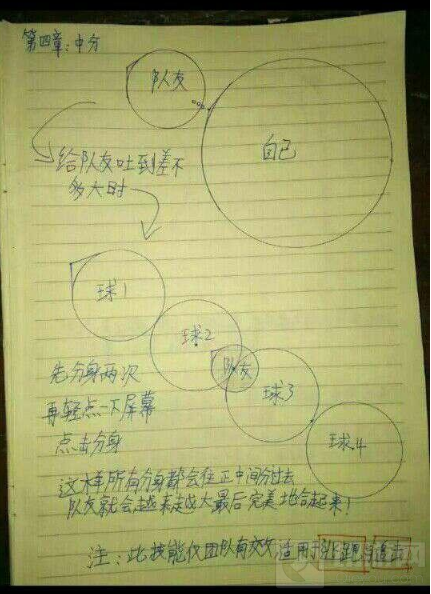 第四章:中分
队友
自己
给队友吐到差不
多大时
球1
球2
队友
球3
球4
先分身两次
再轻点一下屏幕
点击分身
这样所有分身都会往正中间分过去
队友就会越来越大最后完美地合起来!
注:此技能仅团队有效 适用于 追击